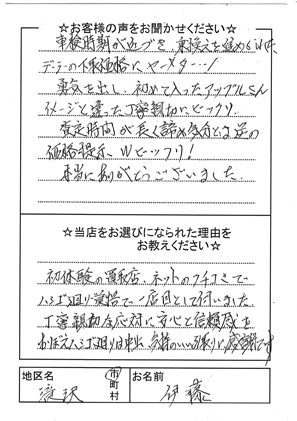 ☆お客様の声をお聞かせください☆
車検時期が近づき、乗換えを進められ
デーラーの下取価格にヤーメター…!
勇気を出し、初めて入ったアップルさん
イメージと違った丁寧親切にビックリ
査定時間が長く諦め気分とは逆の
価格提示、Wビックリ!
本当にありがとうございました。
☆当店をお選びになられた理由を
お教えください☆
初体験の買取店、ネットのクチコミで
ハシゴ廻り覚悟で一店目として伺いました
丁寧親切な応対に安心と信頼感を
おぼえハシゴ廻りは中止 気持のいい引取りに感謝です
地区名
滝沢
市
町
村
お名前
伊藤